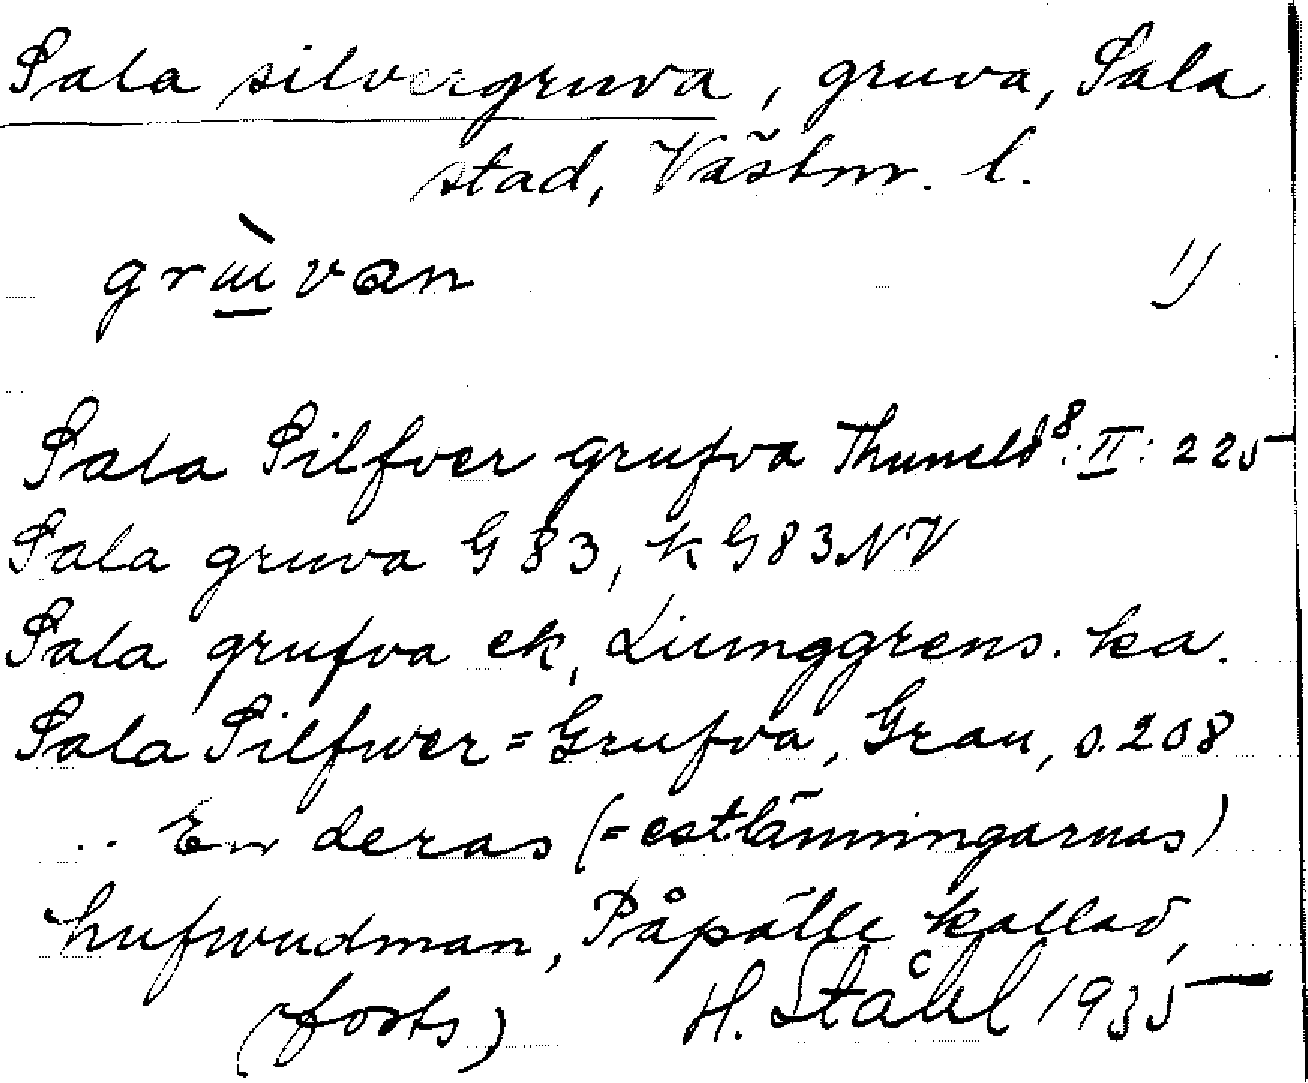 Sala silvergruva, gruva, Sala
stad, Västm. l.
grùvan 1)
Sala Silfver grufva Thuneld⁸: II: 225
Sala gruva G 83, k G83NV
Sala grufva ek, Liunggrens. ka.
Sala Silfwer=Grufva, Grau, s. 208
.. En deras (= estlänningarnas)
hufwudman, Påpälle kallad,
(forts) H. Ståhl 1935